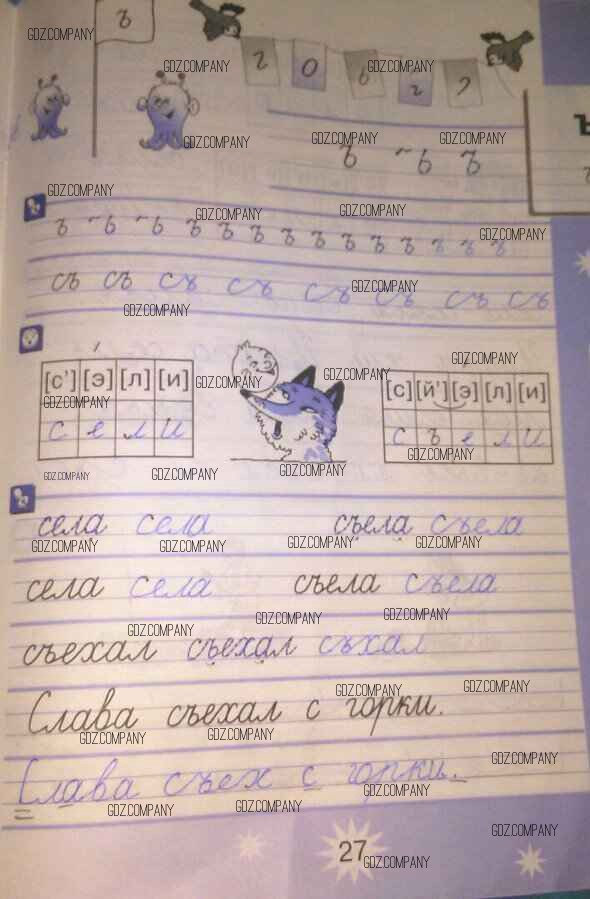 ъ
ъ ъ ъ
ъ ъ ъ ъ ъ ъ ъ ъ ъ ъ ъ ъ ъ ъ ъ
съ съ съ съ съ съ съ съ
[с'] [э] [л] [и]
с е л и
[с] [й'] [э] [л] [и]
с ъ е л и
села села съела съела
села села съела съела
съехал съехал съхал
Слава съехал с горки.
Слава съех с горки.
27
GDZ.COMPANY